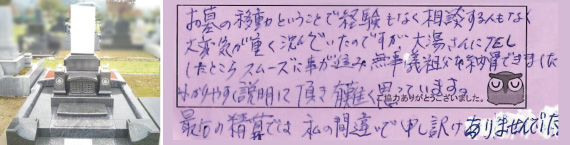 お墓の移動ということで経験もなく相談する人もなく
大変気が重く沈んでいたのですが、大湯さんにTEL
したところスムーズに事が進み無事義祖父を納骨できました
わかりやすく説明して頂き有難く思っています。
ご協力ありがとうございました。
最后の精算では私の間違いで申し訳けありませんでした